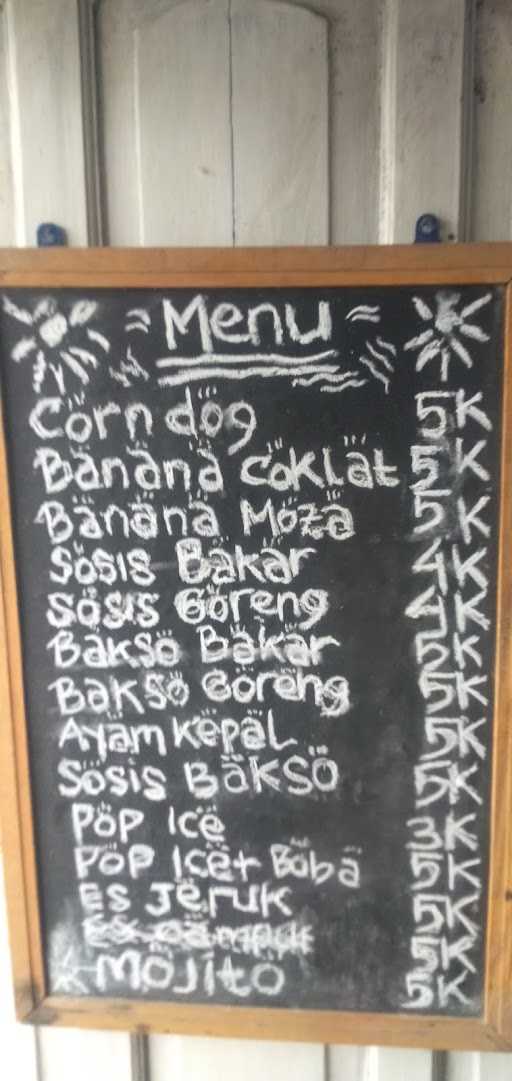 Menu
Corn dog 5K
Banana coklat 5K
Banana Moza 5K
Sosis Bakar 4K
Sosis Goreng 4K
Bakso Bakar 5K
Bakso Goreng 5K
Ayam kepal 5K
Sosis Bakso 5K
Pop Ice 3K
Pop Ice + Boba 5K
Es Jeruk 5K
Es 5K
Mojito 5K